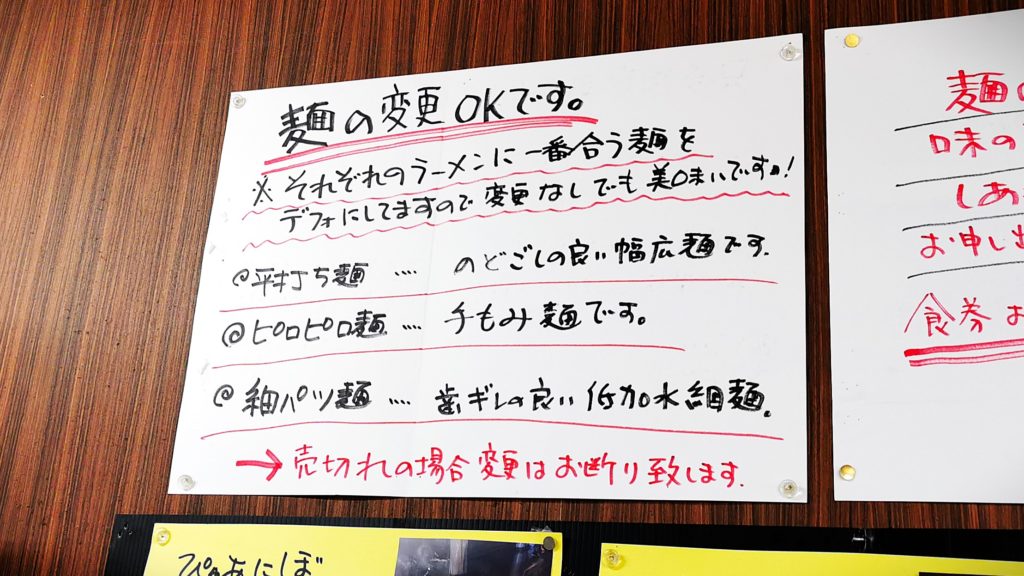 麺の変更OKです。
※それぞれのラーメンに一番合う麺を
デフォにしてますので変更なしでも美味いですょ!
@平打ち麺 …. のどごしの良い幅広麺です.
@ピロピロ麺 …. 手もみ麺です。
@細パツ麺 …. 歯ギレの良い低加水細麺.
→売切れの場合変更はお断り致します.
麺の
味の
しあ
お申し出
食券お
ぴあにしぼ